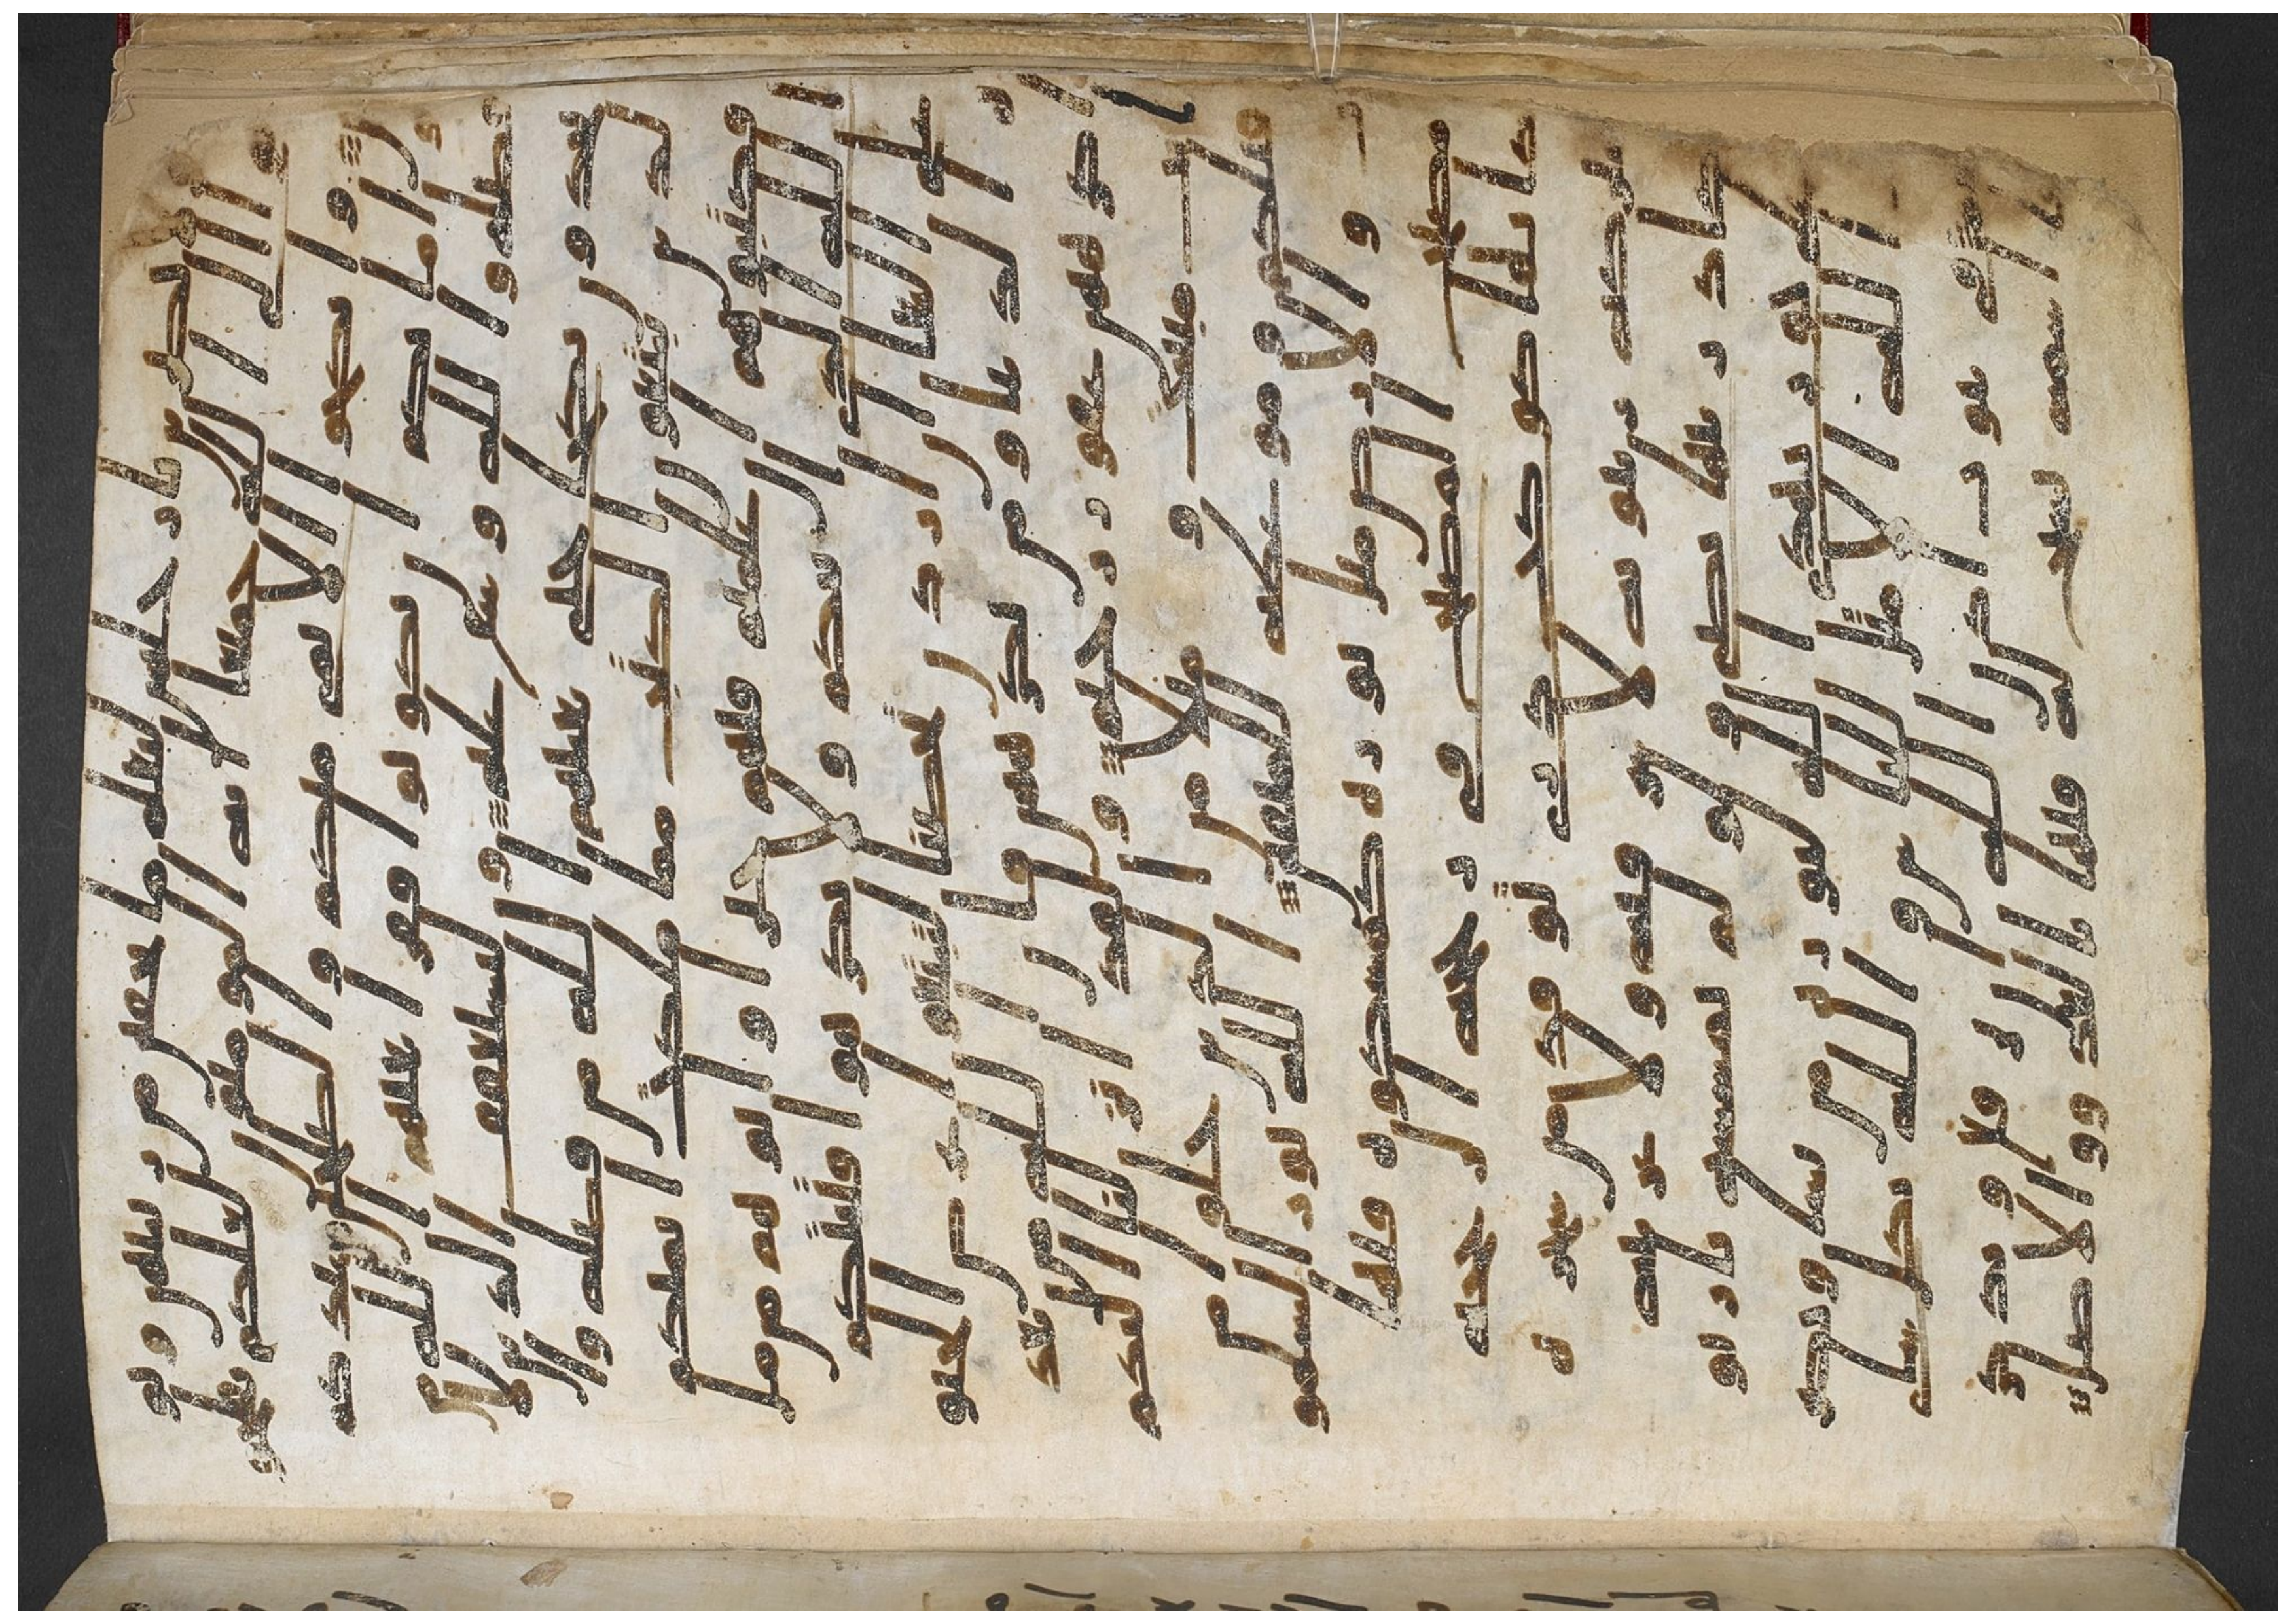 بن بارجلهن ليعلم ما يخفين من زينتهن وتو
بوا الى الله جميعا ايه المومنون لعلكم تفلحون
وانكحوا الايمى منكم والصلحين من عبدكم
وامائكم ان يكونوا فقرا يغنهم الله
من فضله والله وسع عليم وليستعفف الذين لا
يجدون نكاحا حتى يغنيهم الله من فضله والذ
ين يبتغون الكتب مما ملكت ايمنكم
فكتبوهم ان علمتم فيهم خيرا واتوهم من ما
ل الله الذي اتيكم ولا تكرهوا فتيتكم
على البغا ان اردن تحصنا لتبتغوا عرض الحيوة
الدنيا ومن يكرههن فان الله من بعد
اكرههن غفور رحيم ولقد انزلنا اليكم
ايت مبينت ومثلا من الذين خلوا من
قبلكم وموعظة للمتقين الله نور السمو
ت والارض مثل نوره كمشكوة فيها
مصباح المصباح في زجاجة الزجاجة
كانها كوكب دري يوقد من شجر
ة مبركة زيتونة لا شرقية ولا غربية
يكاد زيتها يضي ولو لم تمسسه نار نو
ر على نور يهدي الله لنوره من يشا ويضر
ب الله الامثل للناس والله بكل شي
عليم في بيوت اذن الله ان ترفع ويذكر
فيها اسمه يسبح له فيها بالغدو والاصال